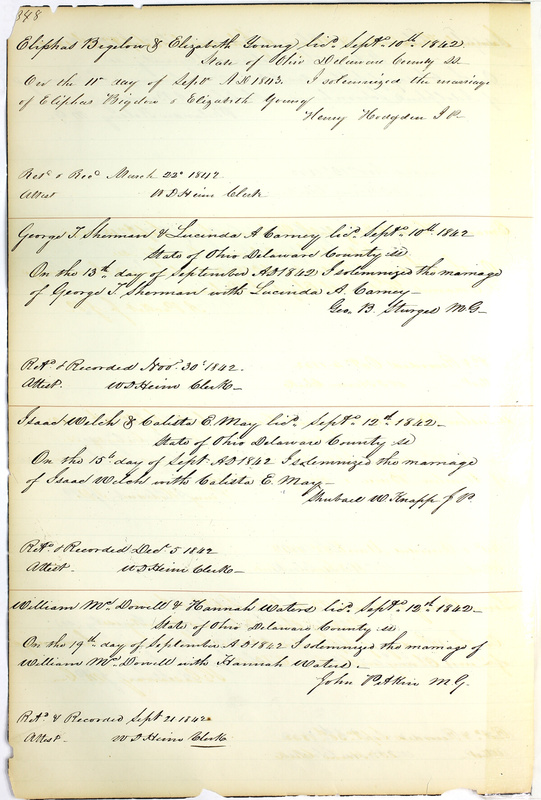 348
Eliphas Bigelow & Elizabeth Young licd. Septr. 10th. 1842
State of Ohio Delaware County ss
On the 11th day of Septr AD 1843. I solemnized the marriage
of Eliphas Bigelow & Elizabeth Young
Henry Hodgden J P.
Retd & Recd March 22d 1847
Attest W D Heim Clerk
George T Sherman & Lucinda A Carney licd. Septr. 10th. 1842
State of Ohio Delaware County ss
On the 13th day of September AD 1842 I solemnized the marriage
of George T Sherman with Lucinda A. Carney-
Geo. B. Sturges M G-
Retd & Recorded Novr. 30th 1842.
Attest. W D Heim Clerk-
Isaac Welch & Calista E. May licd. Septr. 12th. 1842-
State of Ohio Delaware County ss
On the 15th day of Sept. AD 1842 I solemnized the marriage
of Isaac Welch with Calista E. May-
Shubael W. Knapp J P.
Retd & Recorded Decr 5 1842
Attest. W D Heim Clerk-
William Mc Dowell & Hannah Waters licd. Septr. 12th. 1842-
State of Ohio Delaware County ss
On the 19th day of September AD 1842 I solemnized the marriage of
William Mc Dowell with Hannah Waters.-
John M G.
Retd & Recorded Sept 21 1842
Attest- W D Heim Clerk